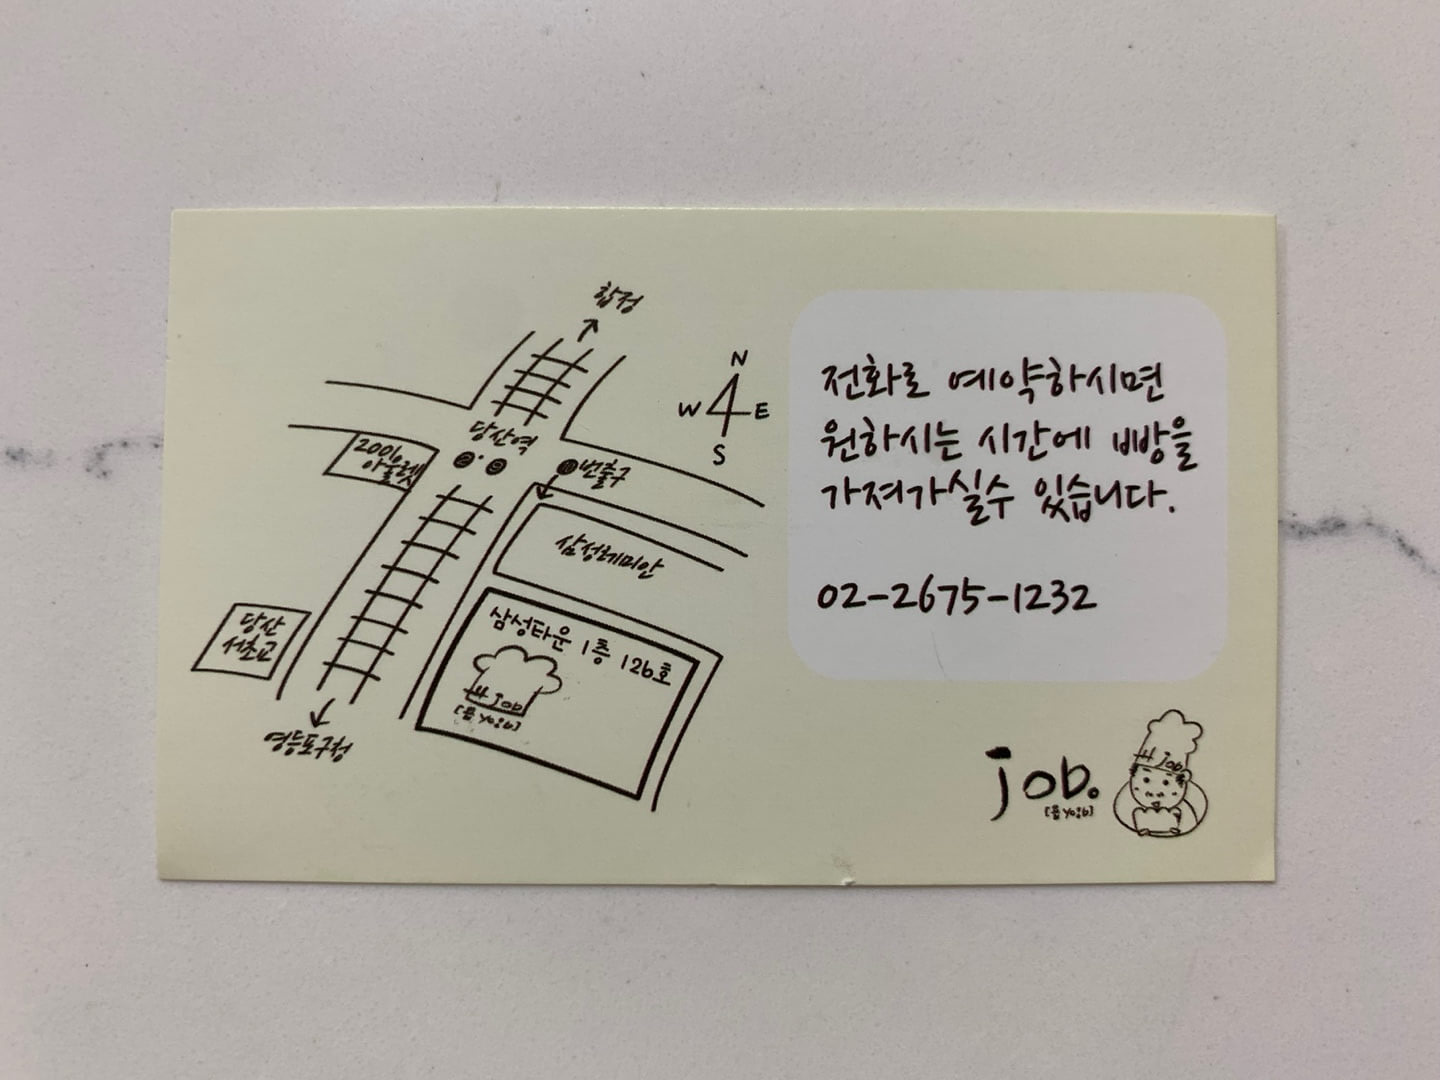 합정
N
W E
S
당산역
2001
아울렛
번출구
삼성래미안
당산
서초교
삼성타운 1층 126호
H job
영등포구청
전화로 예약하시면
원하시는 시간에 빵을
가져가실수 있습니다.
02-2675-1232
job.
H job